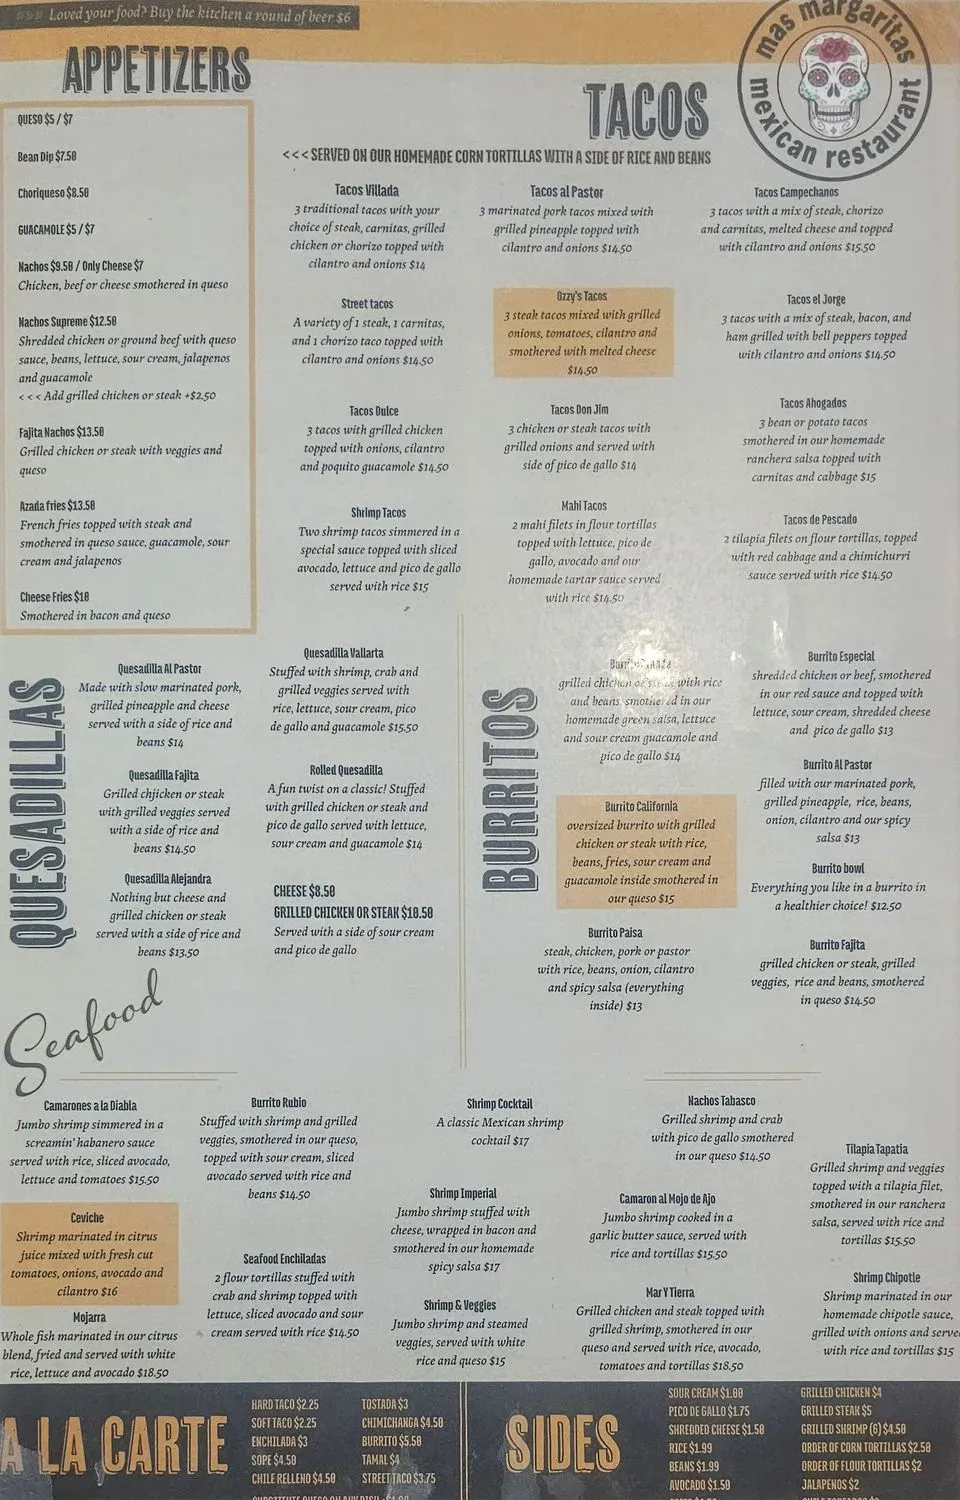 >>> Loved your food? Buy the kitchen a round of beer $6
mas margaritas
mexican restaurant
APPETIZERS
QUESO $5 / $7
Bean Dip $7.50
Choriqueso $8.50
GUACAMOLE $5 / $7
Nachos $9.50 / Only Cheese $7
Chicken, beef or cheese smothered in queso
Nachos Supreme $12.50
Shredded chicken or ground beef with queso
sauce, beans, lettuce, sour cream, jalapenos
and guacamole
<<< Add grilled chicken or steak +$2.50
Fajita Nachos $13.50
Grilled chicken or steak with veggies and
queso
Azada fries $13.50
French fries topped with steak and
smothered in queso sauce, guacamole, sour
cream and jalapenos
Cheese Fries $10
Smothered in bacon and queso
TACOS
<<< SERVED ON OUR HOMEMADE CORN TORTILLAS WITH A SIDE OF RICE AND BEANS
Tacos Villada
3 traditional tacos with your
choice of steak, carnitas, grilled
chicken or chorizo topped with
cilantro and onions $14
Street tacos
A variety of 1 steak, 1 carnitas,
and 1 chorizo taco topped with
cilantro and onions $14.50
Tacos Dulce
3 tacos with grilled chicken
topped with onions, cilantro
and poquito guacamole $14.50
Shrimp Tacos
Two shrimp tacos simmered in a
special sauce topped with sliced
avocado, lettuce and pico de gallo
served with rice $15
Tacos al Pastor
3 marinated pork tacos mixed with
grilled pineapple topped with
cilantro and onions $14.50
Ozzy's Tacos
3 steak tacos mixed with grilled
onions, tomatoes, cilantro and
smothered with melted cheese
$14.50
Tacos Don Jim
3 chicken or steak tacos with
grilled onions and served with
side of pico de gallo $14
Mahi Tacos
2 mahi filets in flour tortillas
topped with lettuce, pico de
gallo, avocado and our
homemade tartar sauce served
with rice $14.50
Tacos Campechanos
3 tacos with a mix of steak, chorizo
and carnitas, melted cheese and topped
with cilantro and onions $15.50
Tacos el Jorge
3 tacos with a mix of steak, bacon, and
ham grilled with bell peppers topped
with cilantro and onions $14.50
Tacos Ahogados
3 bean or potato tacos
smothered in our homemade
ranchera salsa topped with
carnitas and cabbage $15
Tacos de Pescado
2 tilapia filets on flour tortillas, topped
with red cabbage and a chimichurri
sauce served with rice $14.50
QUESADILLAS
Quesadilla Al Pastor
Made with slow marinated pork,
grilled pineapple and cheese
served with a side of rice and
beans $14
Quesadilla Fajita
Grilled chjicken or steak
with grilled veggies served
with a side of rice and
beans $14.50
Quesadilla Alejandra
Nothing but cheese and
grilled chicken or steak
served with a side of rice and
beans $13.50
Quesadilla Vallarta
Stuffed with shrimp, crab and
grilled veggies served with
rice, lettuce, sour cream, pico
de gallo and guacamole $15.50
Rolled Quesadilla
A fun twist on a classic! Stuffed
with grilled chicken or steak and
pico de gallo served with lettuce,
sour cream and guacamole $14
CHEESE $8.50
GRILLED CHICKEN OR STEAK $10.50
Served with a side of sour cream
and pico de gallo
BURRITOS
Burrito
grilled chicken or steak with rice
and beans smothered in our
homemade green salsa, lettuce
and sour cream guacamole and
pico de gallo $14
Burrito California
oversized burrito with grilled
chicken or steak with rice,
beans, fries, sour cream and
guacamole inside smothered in
our queso $15
Burrito Paisa
steak, chicken, pork or pastor
with rice, beans, onion, cilantro
and spicy salsa (everything
inside) $13
Burrito Especial
shredded chicken or beef, smothered
in our red sauce and topped with
lettuce, sour cream, shredded cheese
and pico de gallo $13
Burrito Al Pastor
filled with our marinated pork,
grilled pineapple, rice, beans,
onion, cilantro and our spicy
salsa $13
Burrito bowl
Everything you like in a burrito in
a healthier choice! $12.50
Burrito Fajita
grilled chicken or steak, grilled
veggies, rice and beans, smothered
in queso $14.50
Seafood
Camarones a la Diabla
Jumbo shrimp simmered in a
screamin' habanero sauce
served with rice, sliced avocado,
lettuce and tomatoes $15.50
Ceviche
Shrimp marinated in citrus
juice mixed with fresh cut
tomatoes, onions, avocado and
cilantro $16
Mojarra
Whole fish marinated in our citrus
blend, fried and served with white
rice, lettuce and avocado $18.50
Burrito Rubio
Stuffed with shrimp and grilled
veggies, smothered in our queso,
topped with sour cream, sliced
avocado served with rice and
beans $14.50
Seafood Enchiladas
2 flour tortillas stuffed with
crab and shrimp topped with
lettuce, sliced avocado and sour
cream served with rice $14.50
Shrimp Cocktail
A classic Mexican shrimp
cocktail $17
Shrimp Imperial
Jumbo shrimp stuffed with
cheese, wrapped in bacon and
smothered in our homemade
spicy salsa $17
Shrimp & Veggies
Jumbo shrimp and steamed
veggies, served with white
rice and queso $15
Nachos Tabasco
Grilled shrimp and crab
with pico de gallo smothered
in our queso $14.50
Camaron al Mojo de Ajo
Jumbo shrimp cooked in a
garlic butter sauce, served with
rice and tortillas $15.50
Mar Y Tierra
Grilled chicken and steak topped with
grilled shrimp, smothered in our
queso and served with rice, avocado,
tomatoes and tortillas $18.50
Tilapia Tapatia
Grilled shrimp and veggies
topped with a tilapia filet,
smothered in our ranchera
salsa, served with rice and
tortillas $15.50
Shrimp Chipotle
Shrimp marinated in our
homemade chipotle sauce,
grilled with onions and serve
with rice and tortillas $15
A LA CARTE
HARD TACO $2.25
SOFT TACO $2.25
ENCHILADA $3
SOPE $4.50
CHILE RELLENO $4.50
TOSTADA $3
CHIMICHANGA $4.50
BURRITO $5.50
TAMAL $4
STREET TACO $3.75
SUBSTITUTE QUESO ON ANY DISH
SIDES
SOUR CREAM $1.00
PICO DE GALLO $1.75
SHREDDED CHEESE $1.50
RICE $1.99
BEANS $1.99
AVOCADO $1.50
GRILLED CHICKEN $4
GRILLED STEAK $5
GRILLED SHRIMP (6) $4.50
ORDER OF CORN TORTILLAS $2.50
ORDER OF FLOUR TORTILLAS $2
JALAPENOS $2